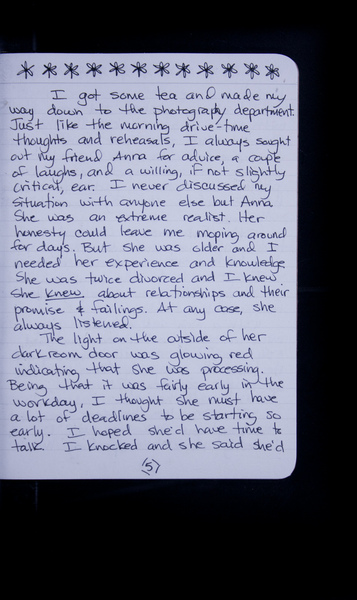 I got some tea and made my
way down to the photography department.
Just like the morning drive-time
thoughts and rehearsals, I always sought
out my friend Anna for advice, a couple
of laughs, and a willing, if not slightly
critical, ear. I never discussed my
situation with anyone else but Anna.
She was an extreme realist. Her
honesty could leave me moping around
for days. But she was older and I
needed her experience and knowledge.
She was twice divorced and I knew
she knew about relationships and their
promise & failings. At any case, she
always listened.
The light on the outside of her
darkroom door was glowing red
indicating that she was processing.
Being that it was fairly early in the
workday, I thought she must have
a lot of deadlines to be starting so
early. I hoped she'd have time to
talk. I knocked and she said she'd
(5)